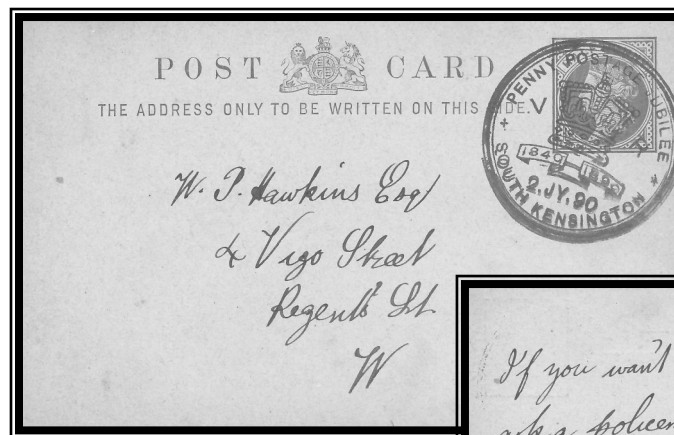 POST CARD
THE ADDRESS ONLY TO BE WRITTEN ON THIS SIDE.
V R
PENNY POSTAGE JUBILEE
1840 1890
2.JY.90
SOUTH KENSINGTON
W. P. Hawkins Esq
4 Vigo Street
Regent's St
W
If you want
ask a policem